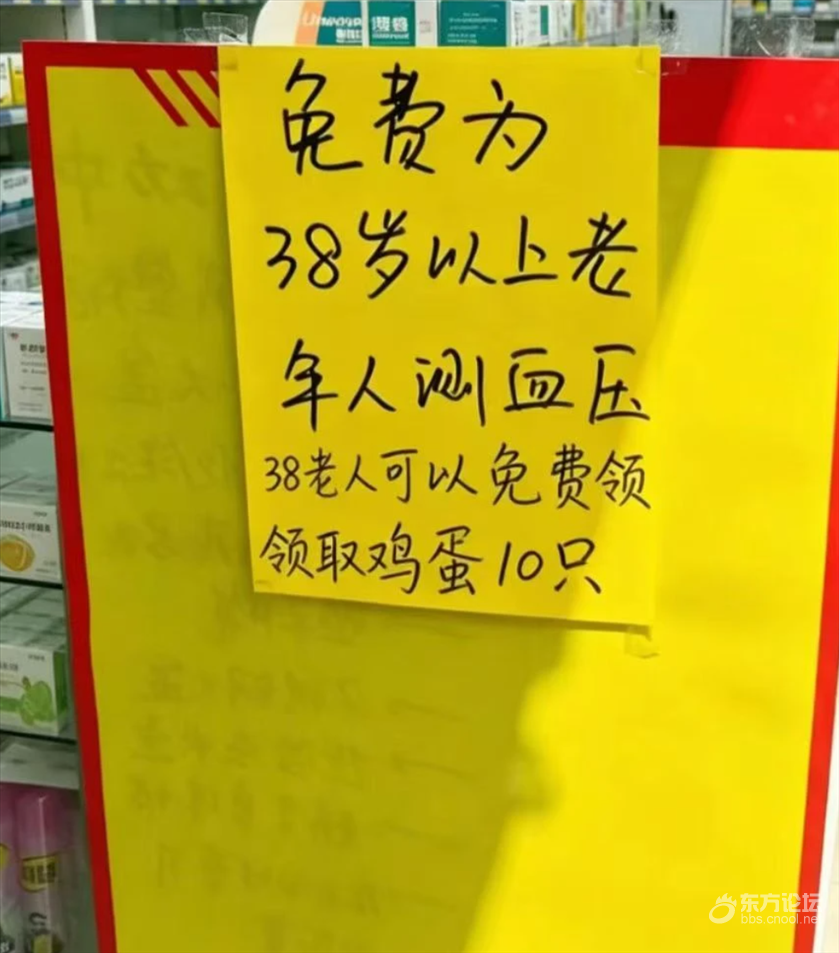 免费为
38岁以上老
年人测血压
38老人可以免费领
领取鸡蛋10只
东方论坛
bbs.cnool.net